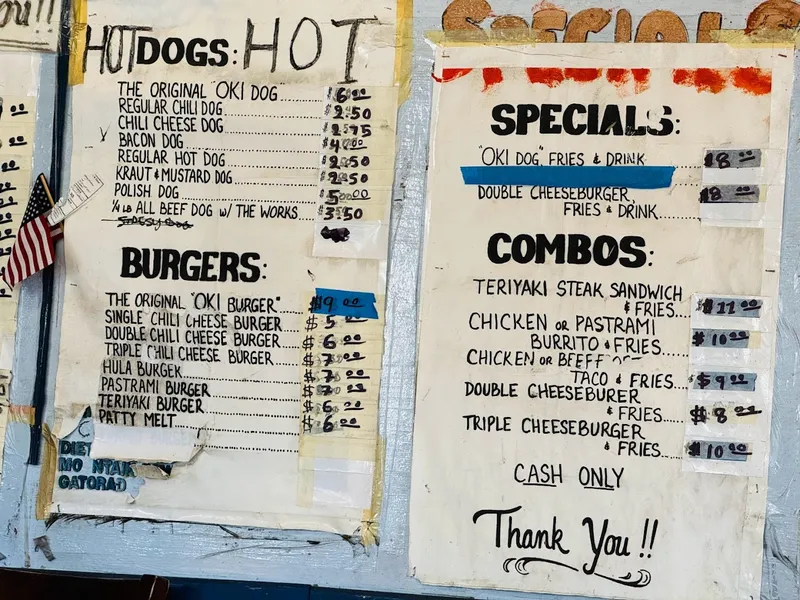 HOT DOGS: HOT
THE ORIGINAL "OKI DOG ........ $6.00
REGULAR CHILI DOG ........ $2.50
CHILI CHEESE DOG ........ 2.75
BACON DOG ........ $4.00
REGULAR HOT DOG ........ 2.50
KRAUT & MUSTARD DOG ........ 2.50
POLISH DOG ........ 5.00
¼ LB ALL BEEF DOG W/ THE WORKS .... $3.50
BURGERS:
THE ORIGINAL "OKI BURGER" ........ $9.00
SINGLE CHILI CHEESE BURGER ........ $5.00
DOUBLE CHILI CHEESE BURGER ........ $6.00
TRIPLE CHILI CHEESE BURGER ........ $7.00
HULA BURGER ........ $7.00
PASTRAMI BURGER ........ $7.00
TERIYAKI BURGER ........ $6.00
PATTY MELT ........ $6.00
DIET
MO NTAIN
GATORAD
SPECIALS
SPECIALS:
"OKI DOG", FRIES & DRINK ........ $8.00
DOUBLE CHEESEBURGER,
FRIES & DRINK ........ $8.00
COMBOS:
TERIYAKI STEAK SANDWICH
& FRIES .... $11.00
CHICKEN OR PASTRAMI
BURRITO & FRIES .... $10.00
CHICKEN OR BEEF
TACO & FRIES .... $9.00
DOUBLE CHEESEBURER
& FRIES .... $8.00
TRIPLE CHEESEBURGER
& FRIES .... $10.00
CASH ONLY
Thank You!!